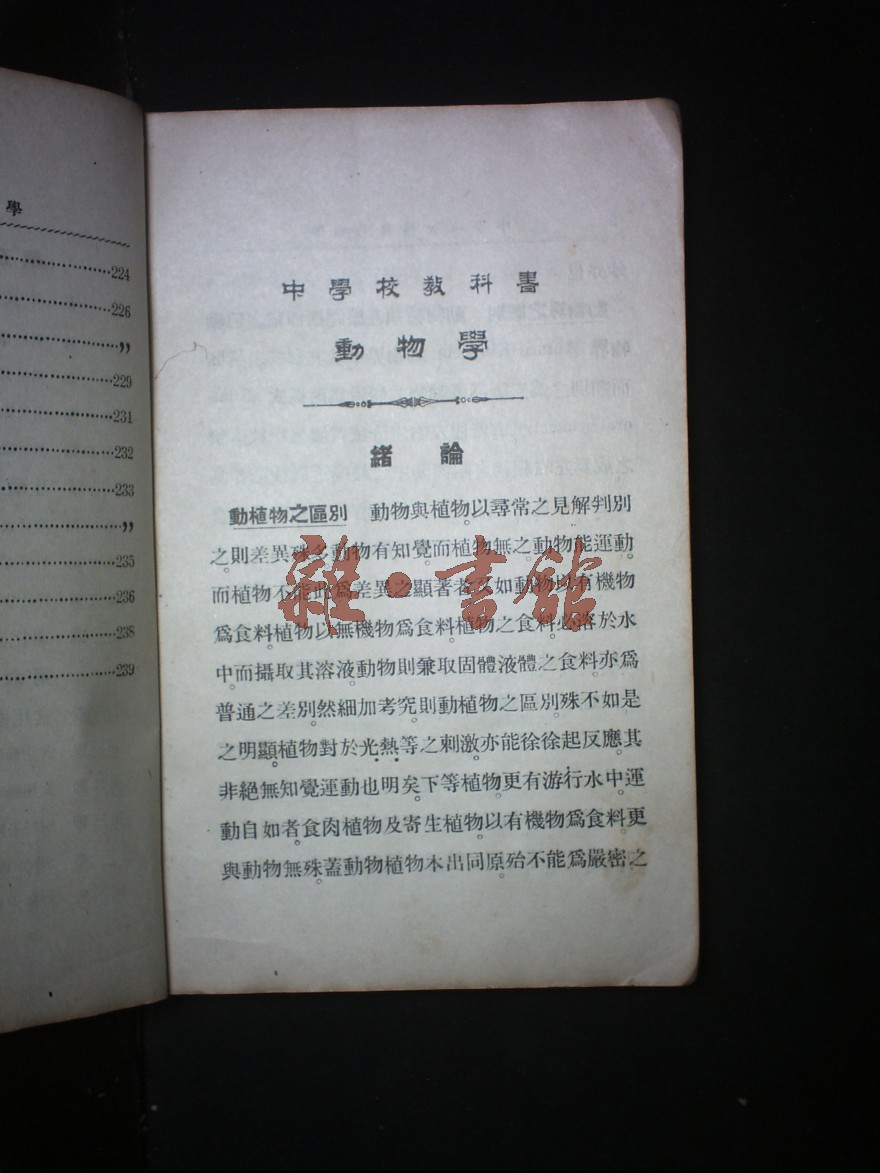 學
224
226
”
229
231
232
233
”
235
236
238
239
中學校教科書
動物學
緒論
動植物之區別 動物與植物。以尋常之見解判別
之。則差異殊多。動物有知覺而植物無之。動物能運動。
而植物不能。此爲差異之顯著者。又如動物以有機物
爲食料。植物以無機物爲食料。植物之食料。必溶於水
中。而攝取其溶液。動物則兼取固體液體之食料。亦爲
普通之差別。然細加考究。則動植物之區別。殊不如是
之明顯。植物對於光、熱、等之刺激。亦能徐徐起反應。其
非絕無知覺運動也明矣。下等植物。更有游行水中。運
動自如者。食肉植物及寄生植物。以有機物爲食料。更
與動物無殊。蓋動物植物本出同原。殆不能爲嚴密之
雜·書館